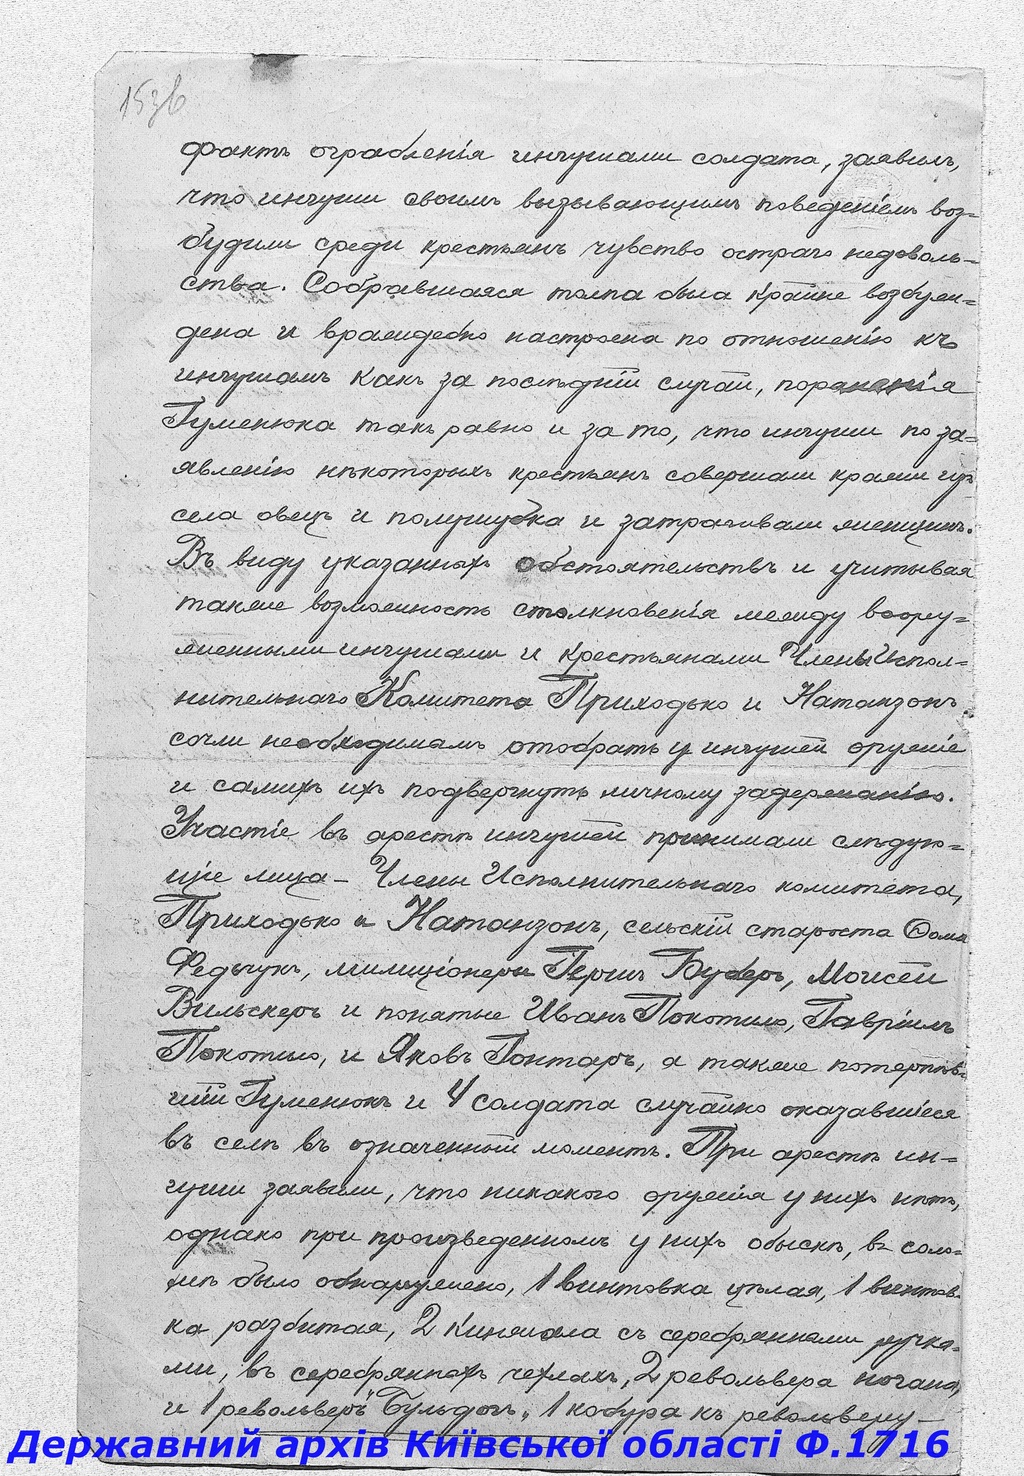 153б
фактъ ограбленія ингушами солдата, заявилъ,
что ингуши своимъ вызывающимъ поведеніемъ воз=
будили среди крестьянъ чувство остраго недоволь=
ства. Собравшаяся толпа была крайне возбуж=
дена и враждебно настроена по отношенію къ
ингушамъ какъ за послѣдній случай, пораненія
Гуменюка такъ равно и за то, что ингуши по за=
явленію нѣкоторыхъ крестьянъ совершали кражи изъ
села овецъ и полушубка и затрагивали женщинъ.
Въ виду указанныхъ обстоятельствъ и учитывая
также возможность столкновенія между воору=
женными ингушами и крестьянами Члены Испол=
нительнаго Комитета Приходько и Натанзонъ
сочли необходимымъ отобрать у ингушей оружіе
и самихъ ихъ подвергнуть личному задержанію.
Участіе въ арестѣ ингушей принимали слѣдую=
щіе лица – Члены Исполнительнаго комитета,
Приходько и Натанзонъ, сельскій староста Фома
Федчукъ, милиціонеры Гершъ Буберъ, Моисей
Вильскеръ и понятые Иванъ Покотило, Гавріилъ
Покотило, и Яковъ Гонтаръ, а также потерпѣв=
шій Гуменюкъ и 4 солдата случайно оказавшіеся
въ селѣ въ означенный моментъ. При арестѣ ин=
гуши заявили, что никакого оружія у нихъ нѣтъ,
однако при произведенномъ у нихъ обыскѣ, въ соло=
мѣ было обнаружено, 1 винтовка цѣлая, 1 винтов=
ка разбитая, 2 кинжала съ серебряными ручка=
ми, въ серебряныхъ чехлахъ, 2 револьвера нагана,
и 1 револьверъ "Бульдогъ", 1 кобура къ револьверу –
Державний архів Київської області Ф.1716